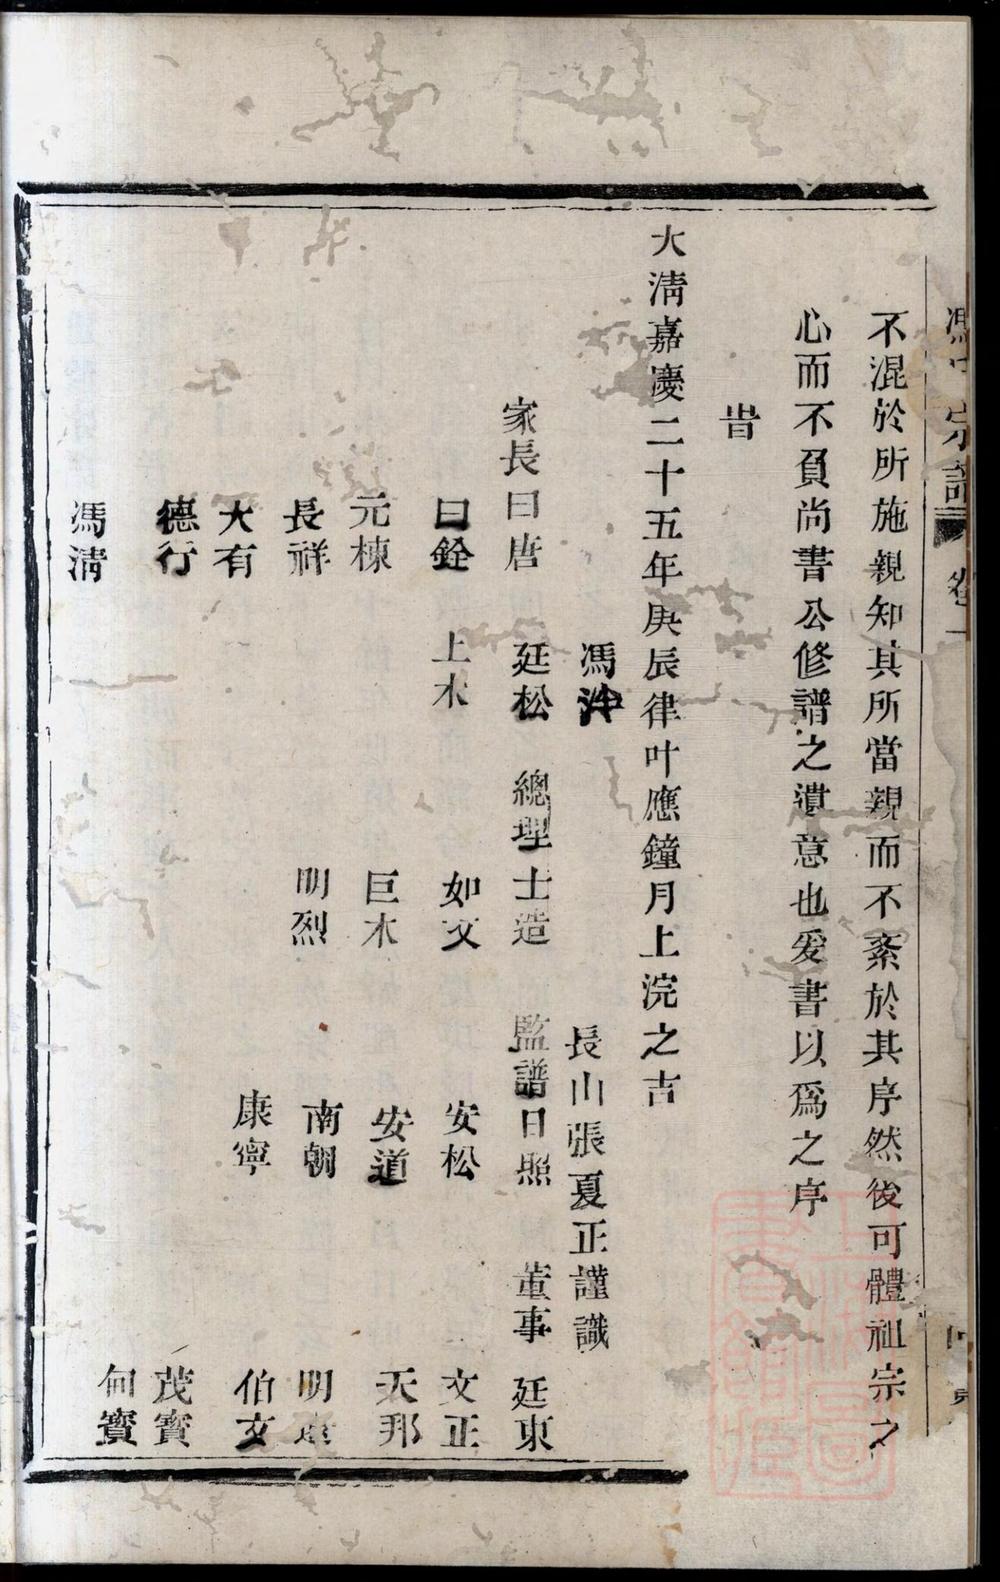 不混於所施親知其所當親而不紊於其序然後可體祖宗之
心而不負尚書公修譜之遺意也爰書以為之序
旹
大清嘉慶二十五年庚辰律叶應鐘月上浣之吉
長山張夏正謹識
馮
家長曰唐 廷松 總理士造 監譜日照 董事 廷東
曰銓 上木 如文 安松 文正
元棟 巨木 安道 天邦
長祥 明烈 南朝 明
大有 康寧 伯玄
德行 茂寳
馮清 何寳
宗譜